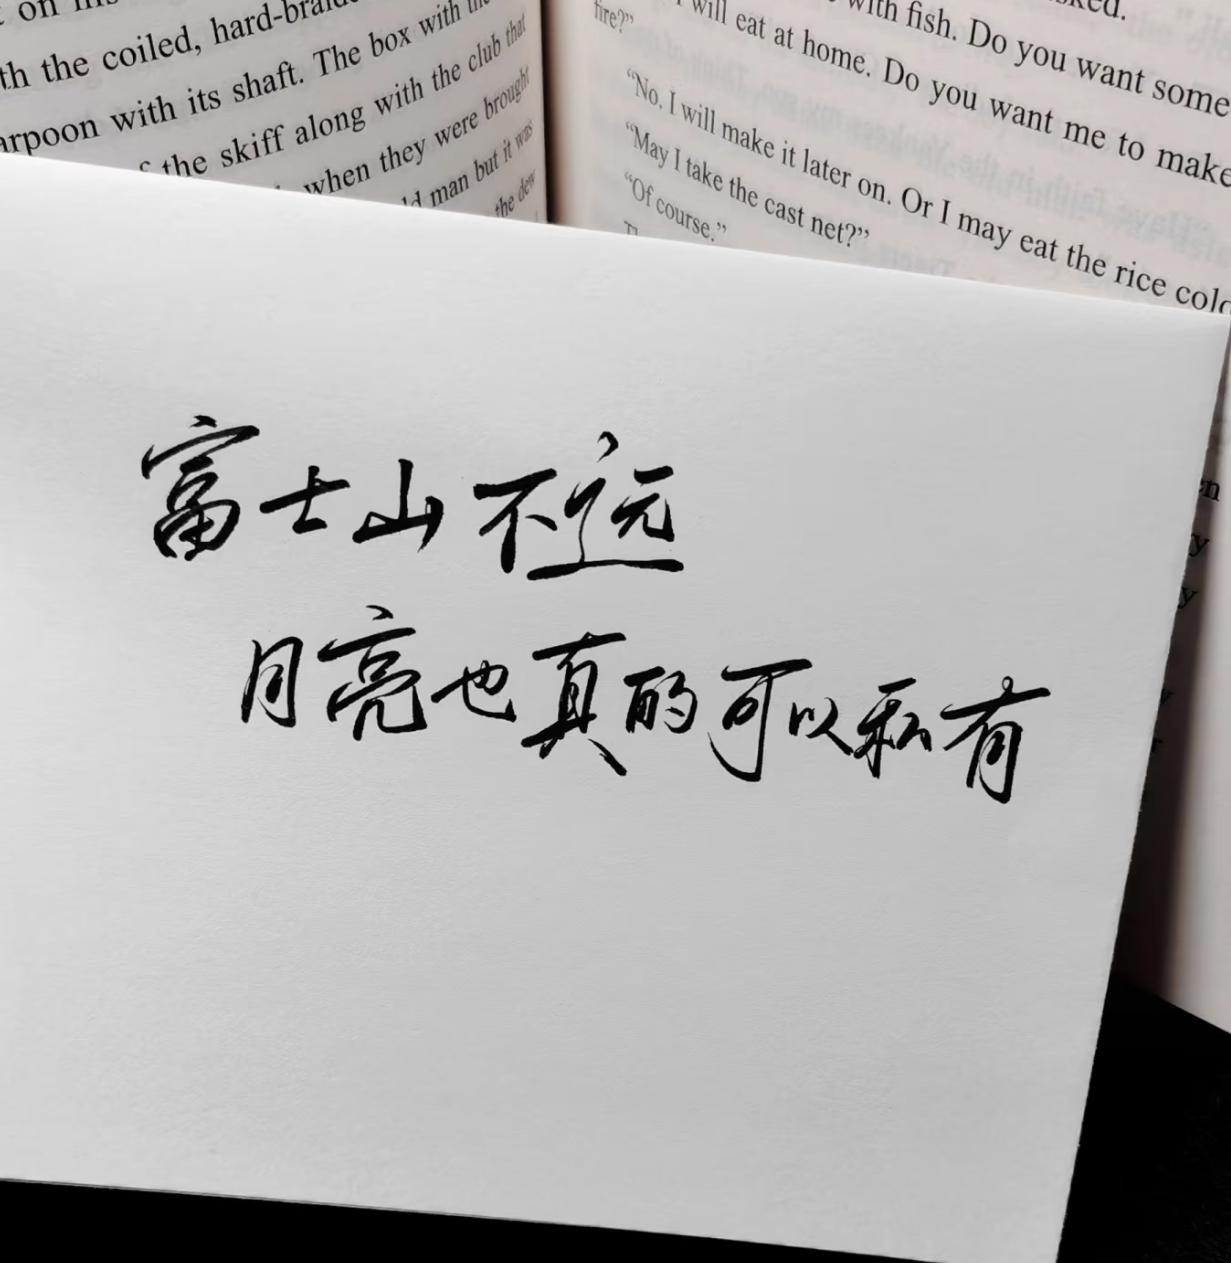 on his
th the coiled, hard-braide
arpoon with its shaft. The box with the
the skiff along with the club that
when they were brought
man but it was
the dew
ked.
with fish. Do you want some
will eat at home. Do you want me to make
fire?”
“No. I will make it later on. Or I may eat the rice cold
“May I take the cast net?”
“Of course.”
富士山不远
月亮也真的可以私有